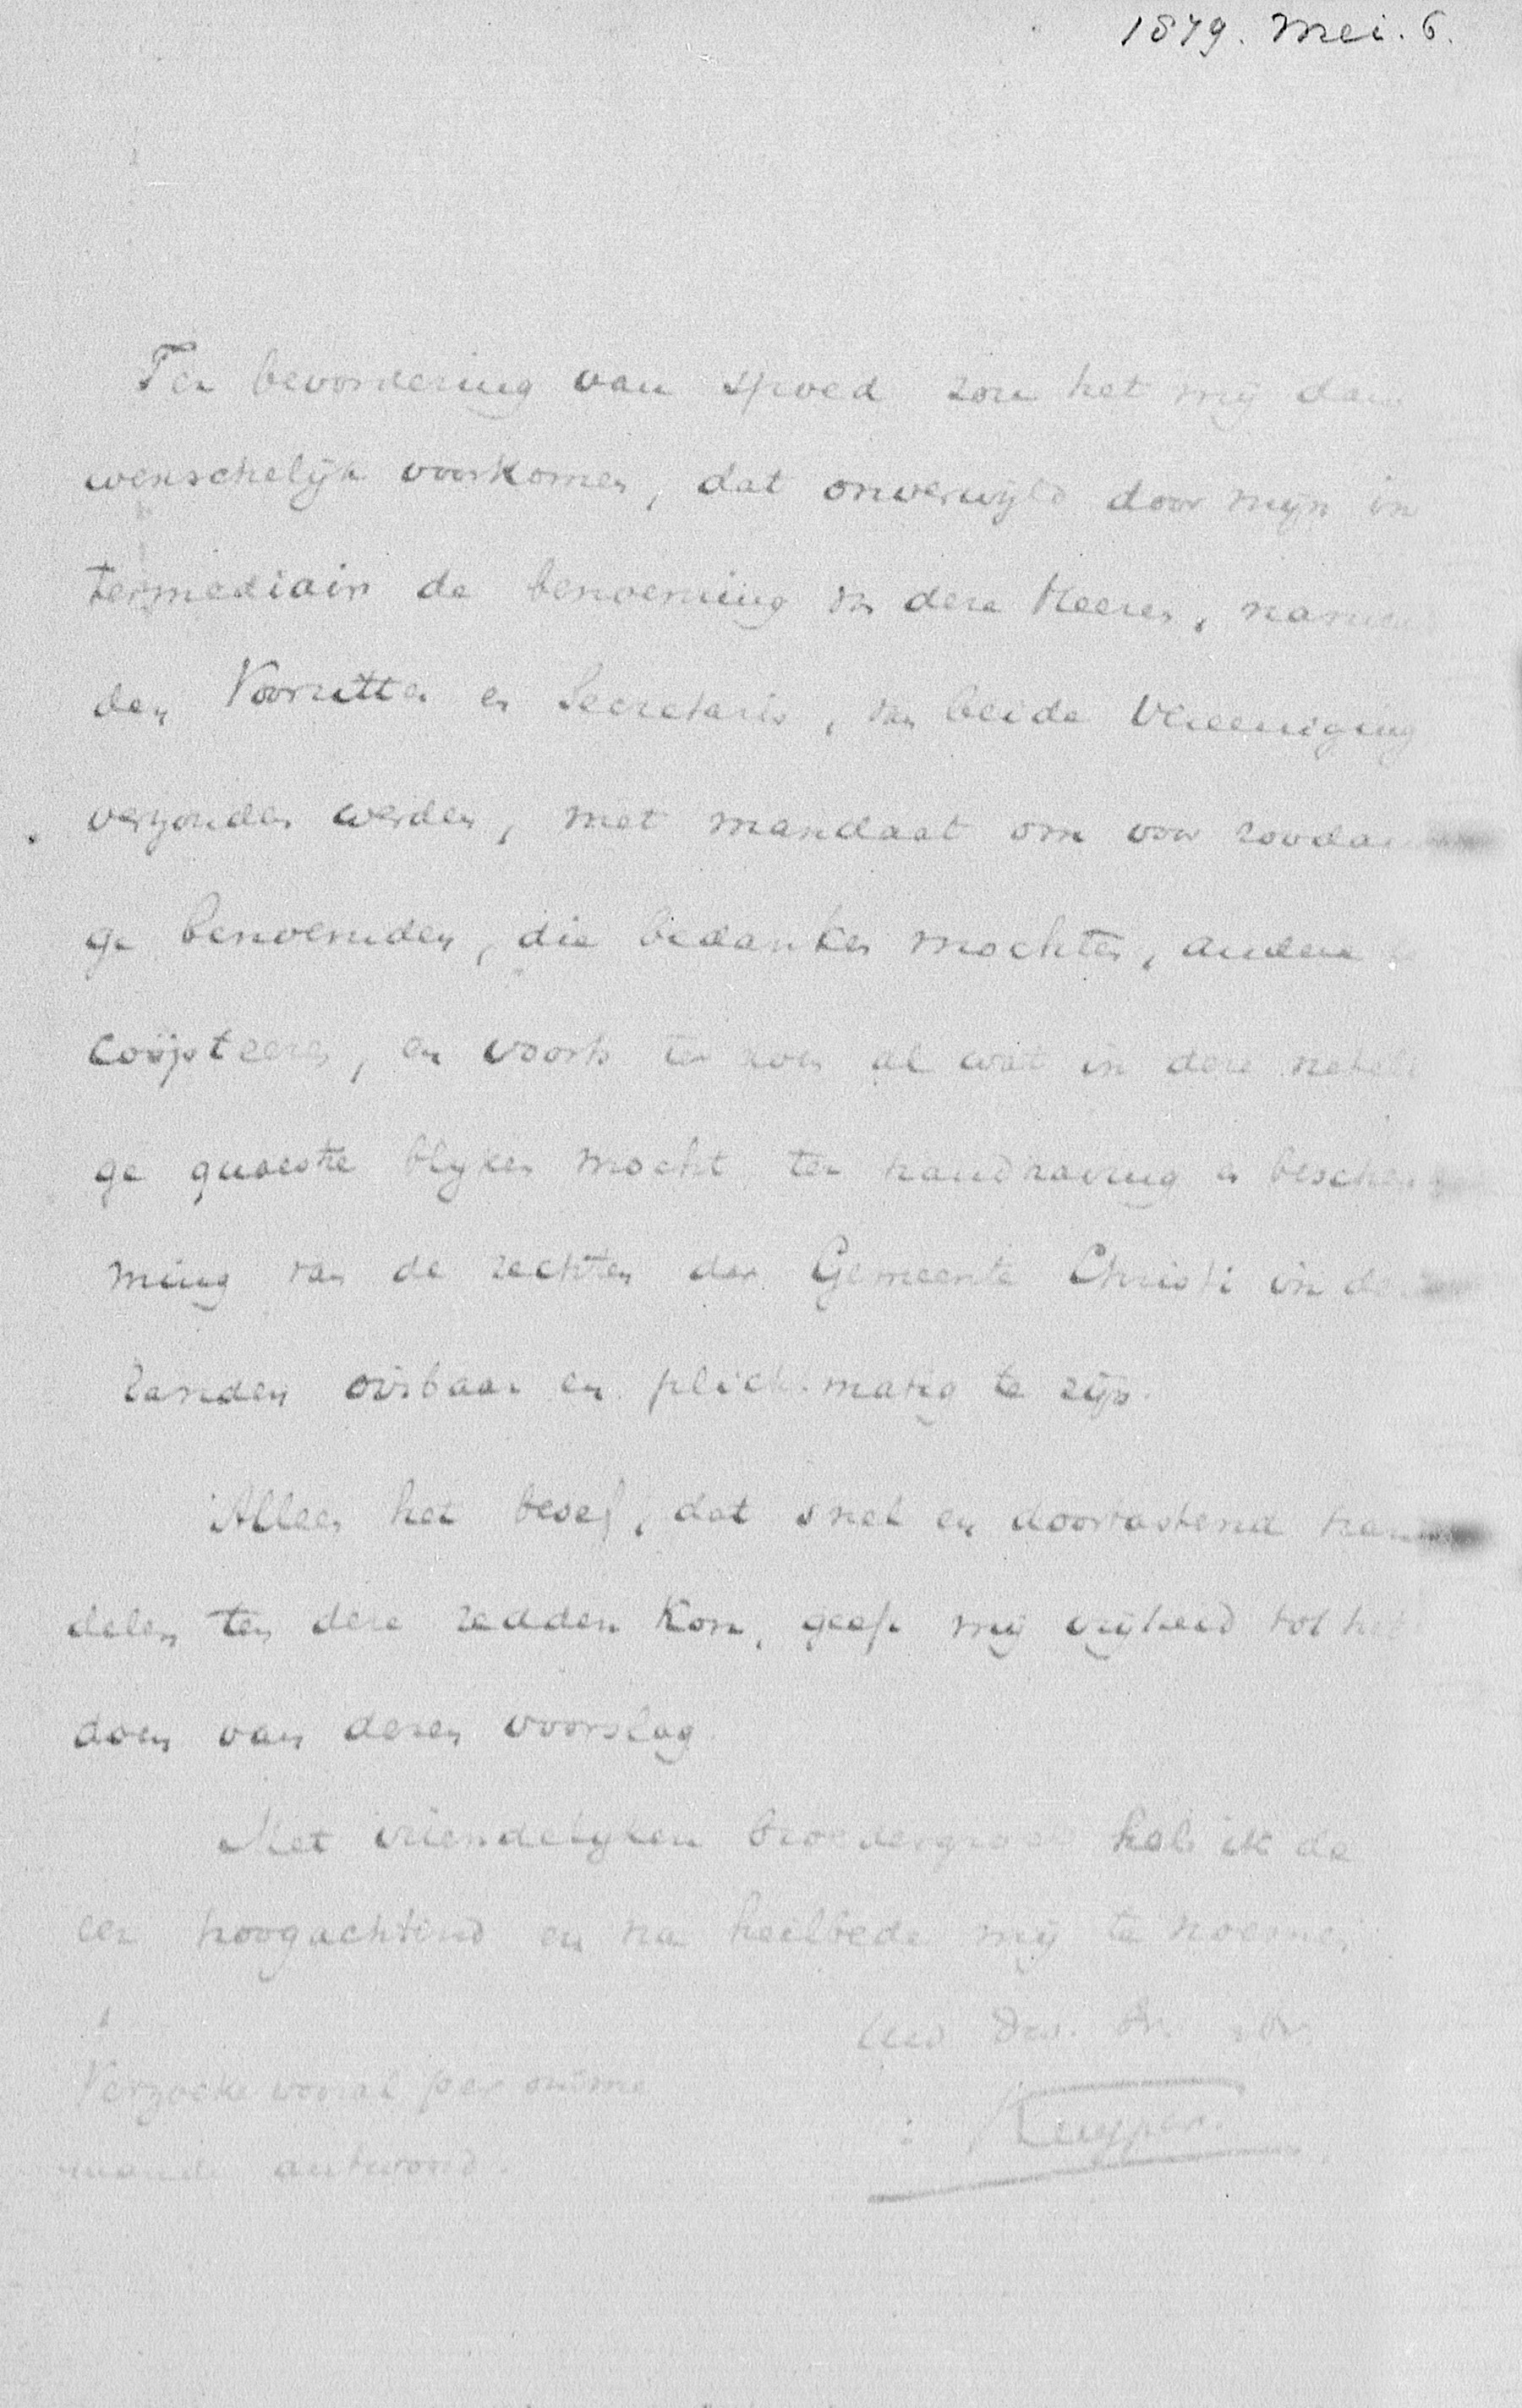 1879. Mei. 6.
Ter bevordering van spoed zou het mij dan
wenschelijk voorkomen, dat onverwijld door mijn in
termediair de benoeming van deze Heeren, namens
den Voorzitter en Secretaris, van beide Vereeniging
verzonden werden, met mandaat om voor zooda
ge benoemden, die bedanken mochten, andere
coöpteeren, en voorts te doen al wat in deze netel
ge quaestie blijken mocht ter handhaving en bescher
ming van de rechten der Gemeente Christi in de
landen oirbaar en plichtmatig te zijn.
Alleen het besef, dat snel en doortastend han
delen ten deze redden kon, geeft mij vrijheid tot het
doen van dezen voorslag
Met vriendelijken broedergroet heb ik de
eer hoogachtend en na heilbede mij te noemen
Uwd Dw. Dr. en Br.
Verzoeke vooral per
Kuyper.
antwoord.